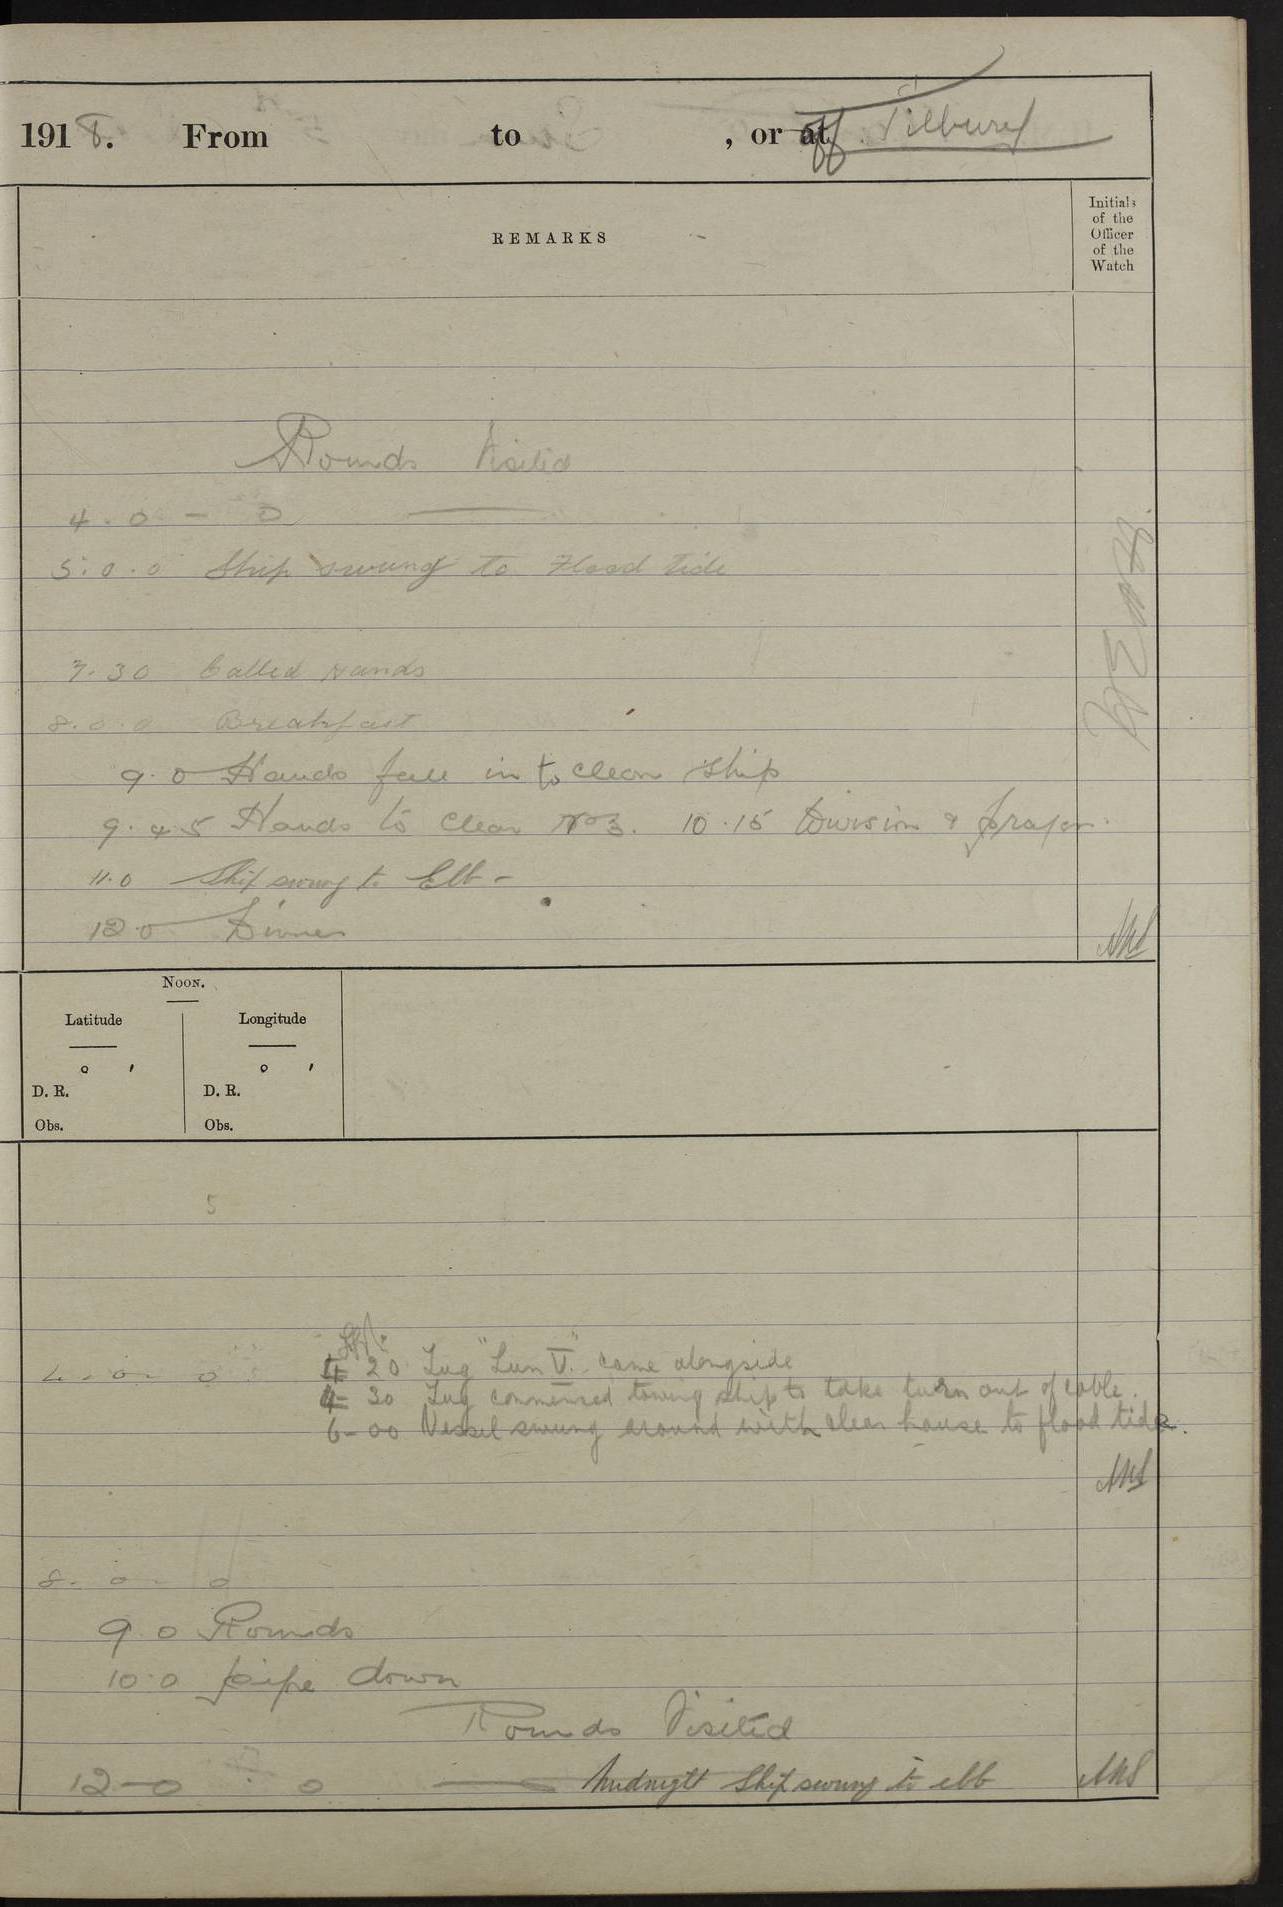 1918. From to , or at off Tilbury
REMARKS
Initials
of the
Officer
of the
Watch
Rounds Visited
4.0 - 0
5.0.0 Ship swung to Flood tide
7.30 Called Hands
8.0.0 Breakfast
9.0 Hands fall in to clean ship
9.45 Hands to clear No 3. 10.15 Division & prayers.
11.0 Ship swung to Ebb -
12.0 Dinner
NOON.
Latitude Longitude
° ′ ° ′
D. R. D. R.
Obs. Obs.
5
4 - 0 - 0
4 20 Tug "Sun V." came alongside
4 = 30 Tug commenced towing ship to take turn out of cable.
6-00 Vessel swung around with clear hause to flood tide.
8. 0 - 0
9.0 Rounds
10.0 pipe down
Rounds Visited
12-0 0 Midnight Ship swung to ebb